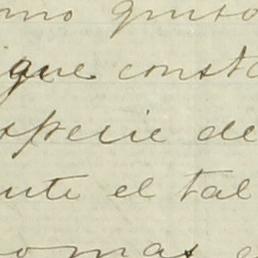 mo quiso
que const
specie de
nte el tal
omas